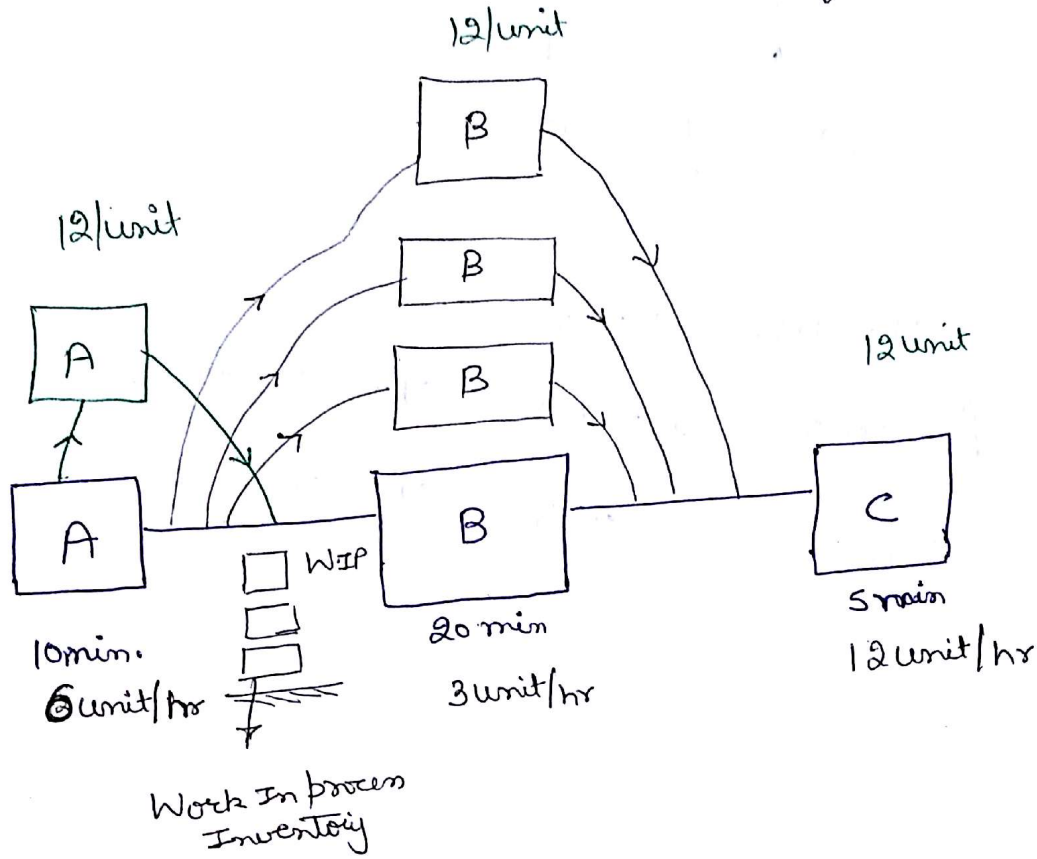 12/unit
B
12/unit
B
A
B
12 unit
A
B
C
WIP
10 min.
6 unit/hr
20 min
3 unit/hr
5 min
12 unit/hr
Work In process
Inventoiy